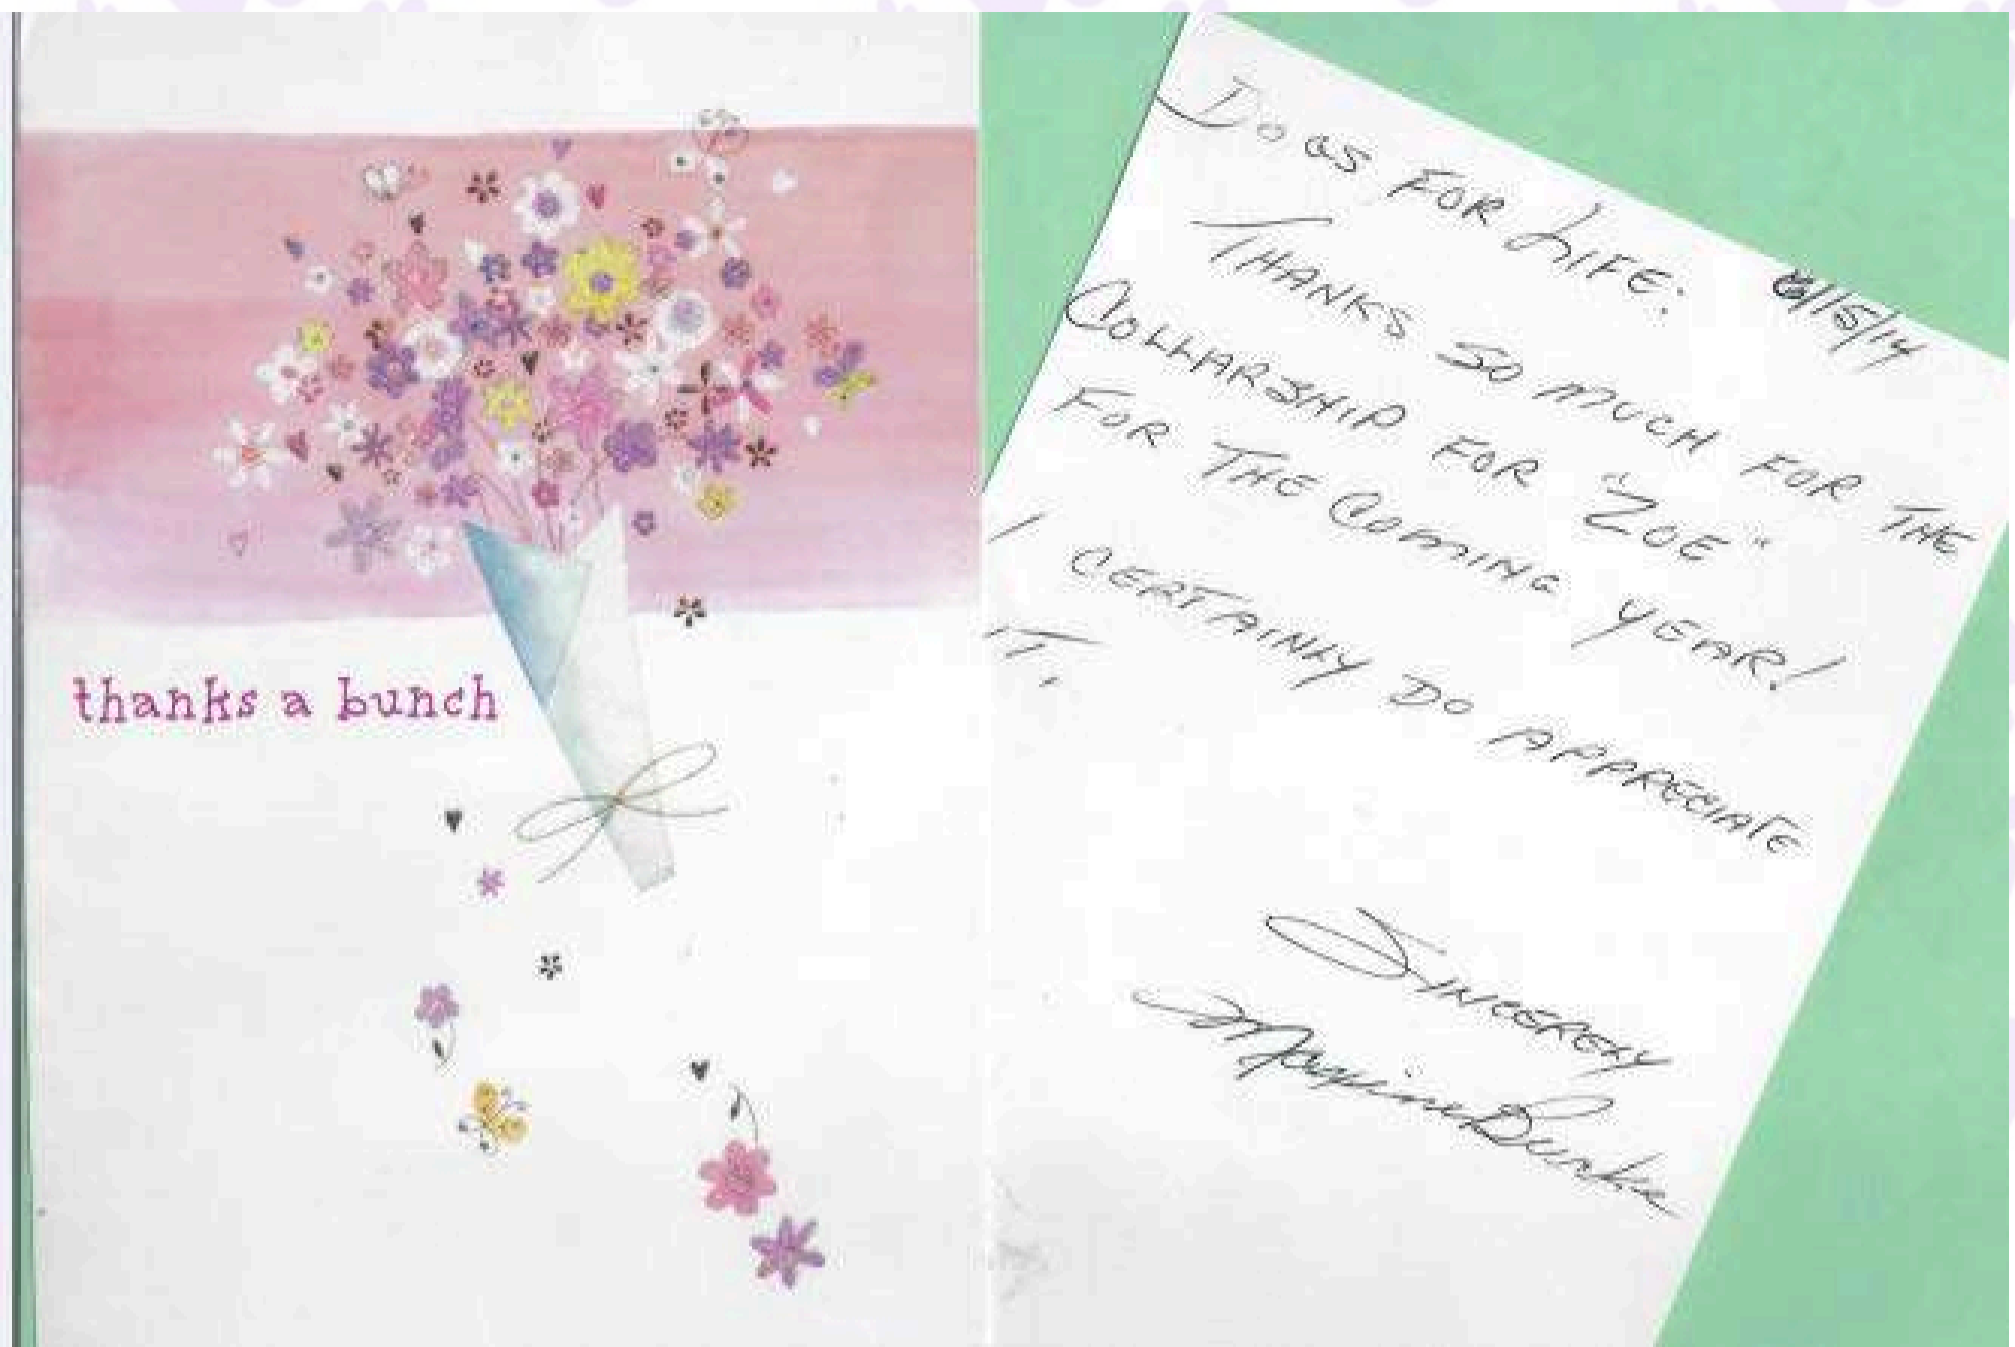 thanks a bunch
DOGS FOR LIFE:
6/15/14
THANKS SO MUCH FOR THE
COLLARSHIP FOR "ZOE"
FOR THE COMING YEAR!
I CERTAINLY DO APPRECIATE
IT.
SINCERELY
Maxine Burke